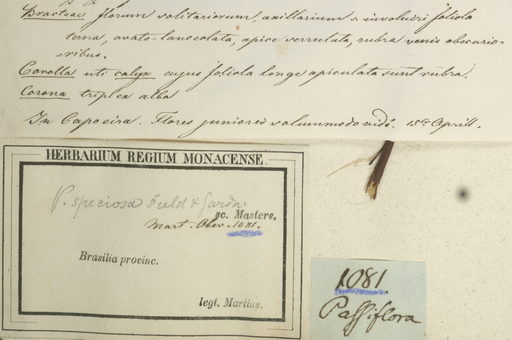 Bracteae florum solitariorum, axillarium s. involucri foliola
terna, ovato-lanceolata, apice serrulata, rubra venis obscurio-
ribus.
Corolla uti calyx cujus foliola longe apiculata sunt rubra.
Corona triplex alba
In Capoeira. Flores juniores solummodo vidi. 15. April.
HERBARIUM REGIUM MONACENSE.
P. speciosa Field & Gardn.
sc. Masters.
Mart. Obsv. 1081.
Brasilia provinc.
legt. Martius.
1081.
Passiflora